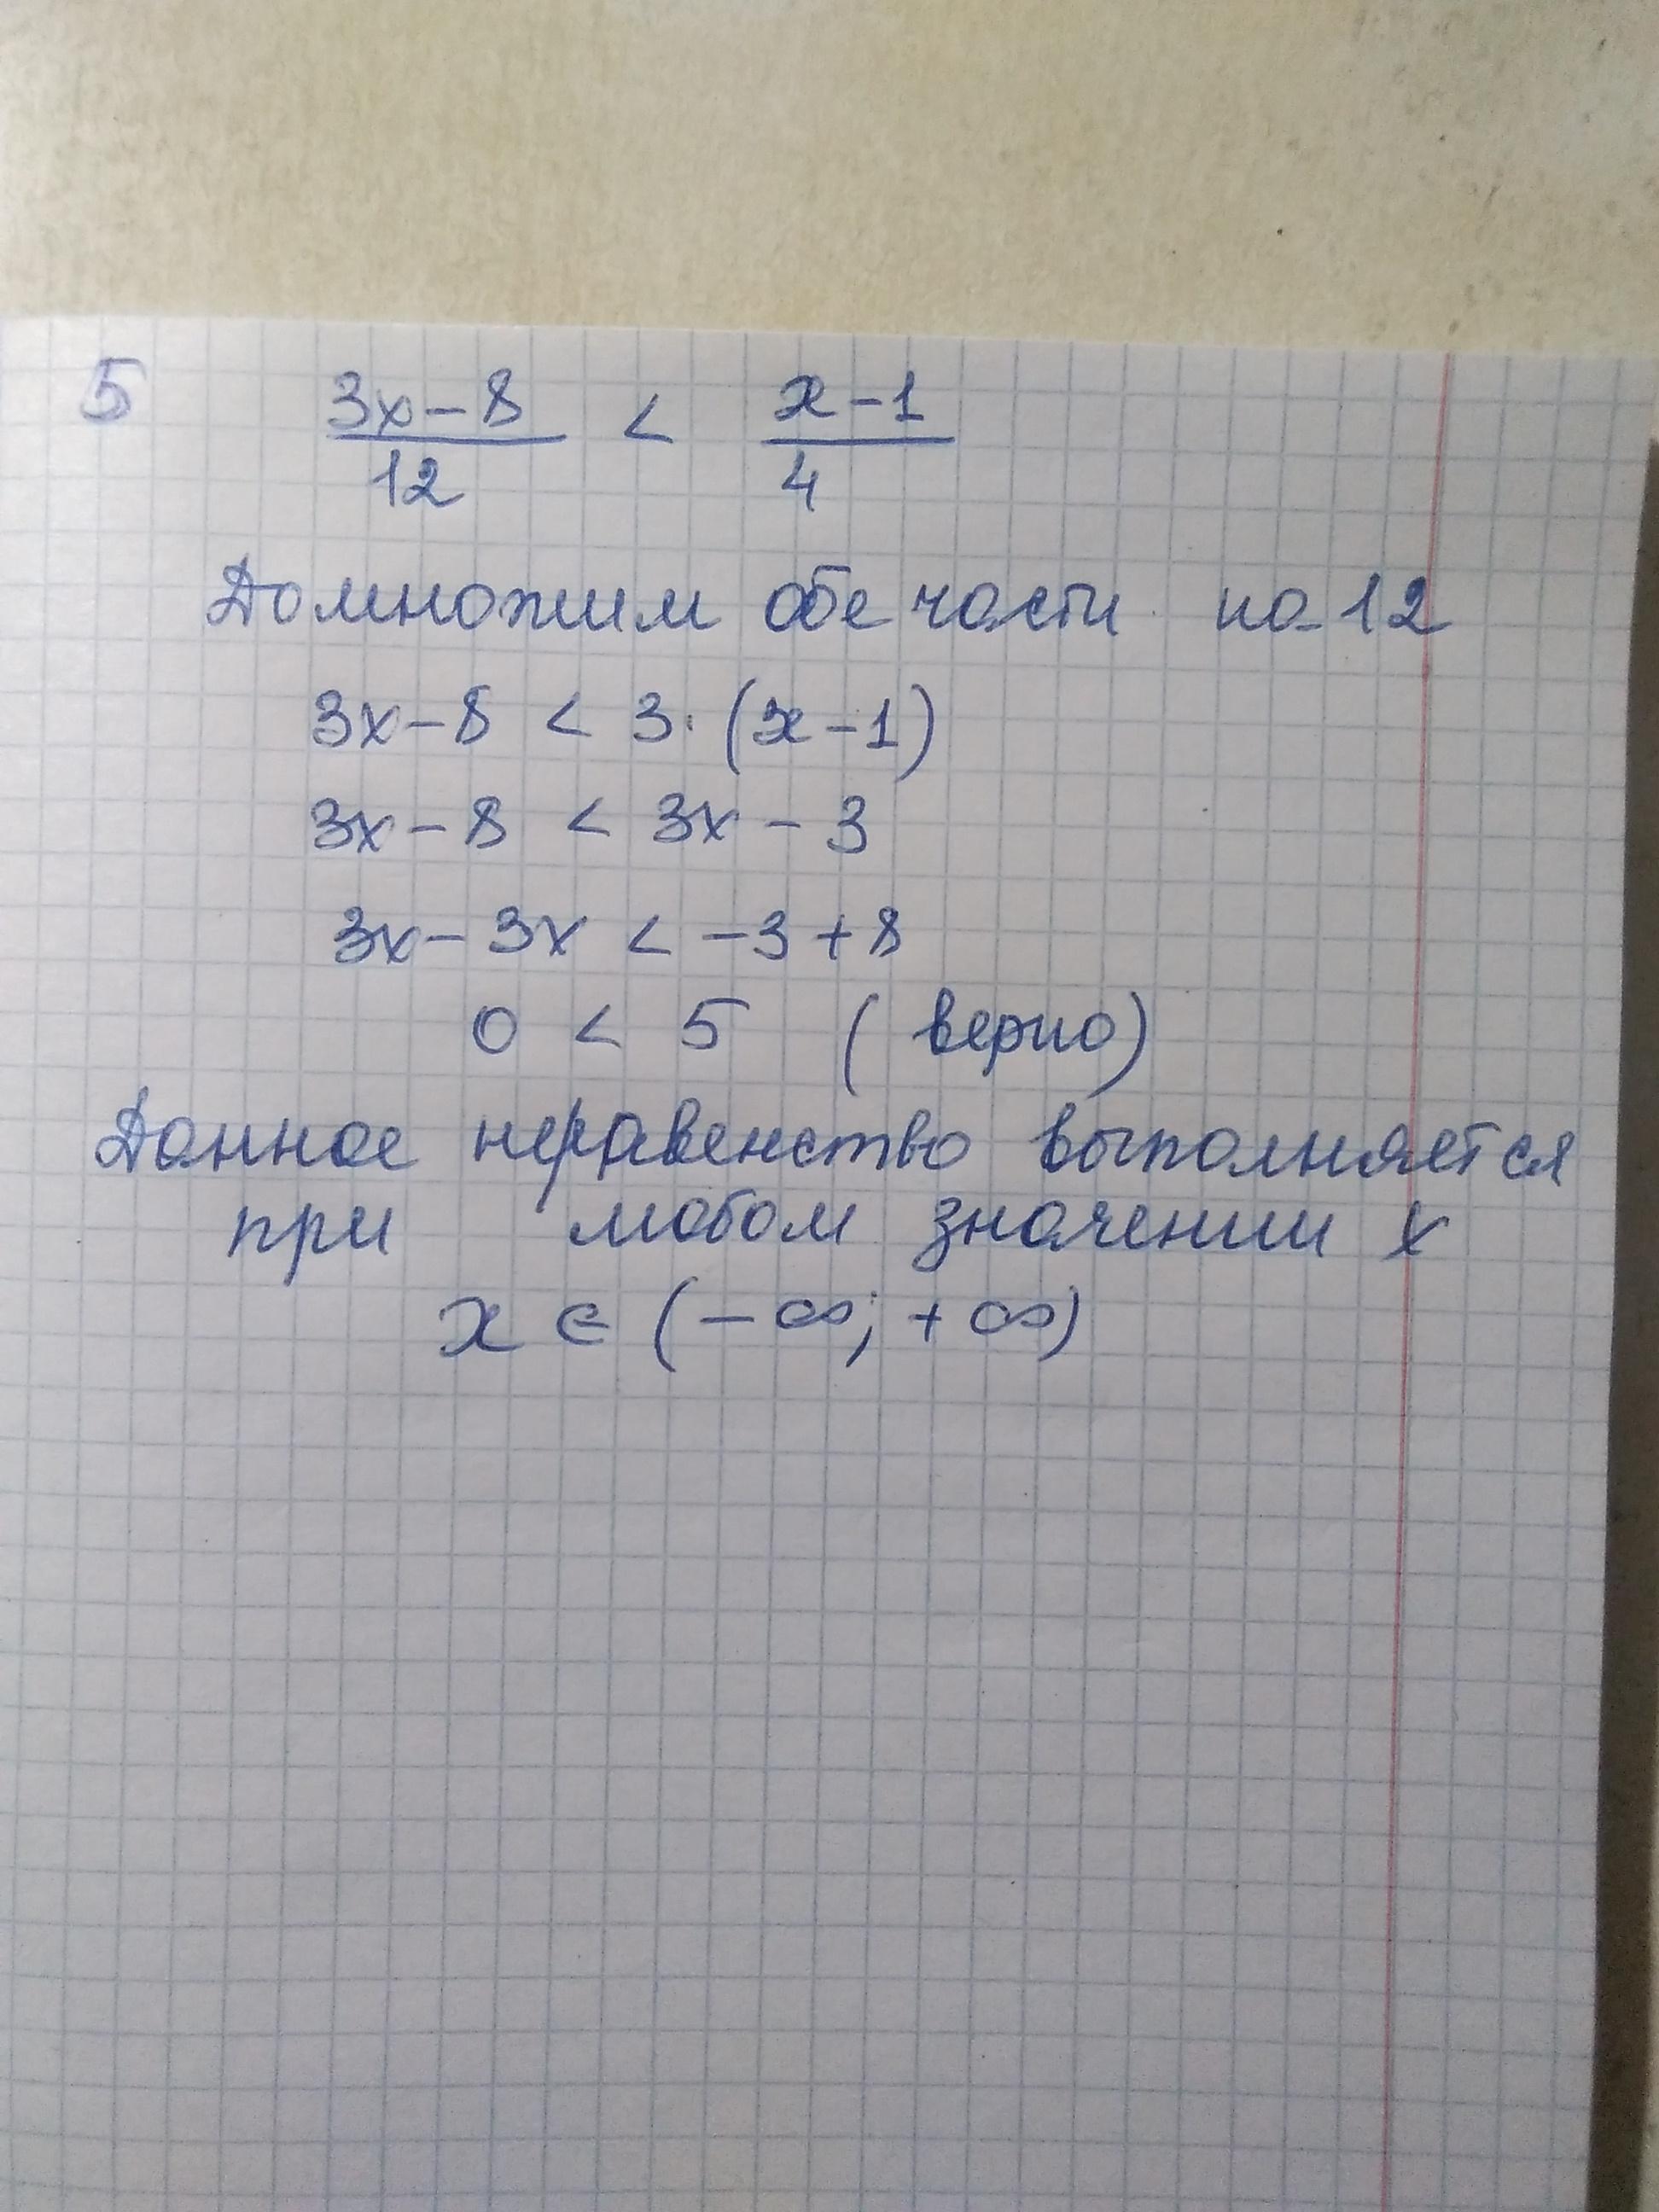 5 3x-8/12 < x-1/4
Домножим обе части на 12
3x-8 < 3·(x-1)
3x-8 < 3x-3
3x-3x < -3+8
0 < 5 (верно)
Данное неравенство выполняется
при любом значении x
x ∈ (-∞; +∞)